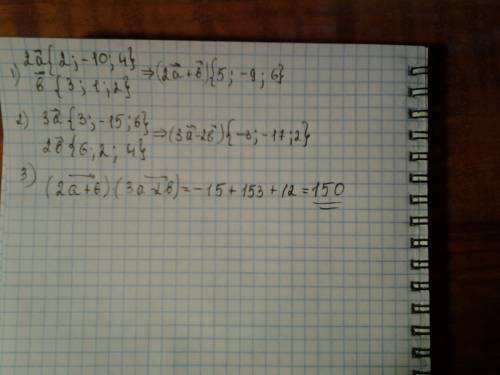 1) 2a⃗{2; -10; 4}
b⃗ {3; 1; 2} ⇒ (2a⃗+b⃗){5; -9; 6}
2) 3a⃗{3; -15; 6}
2b⃗{6, 2; 4} ⇒ (3a⃗-2b⃗){-3; -17; 2}
3) (2a+b)(3a-2b)=-15+153+12=150